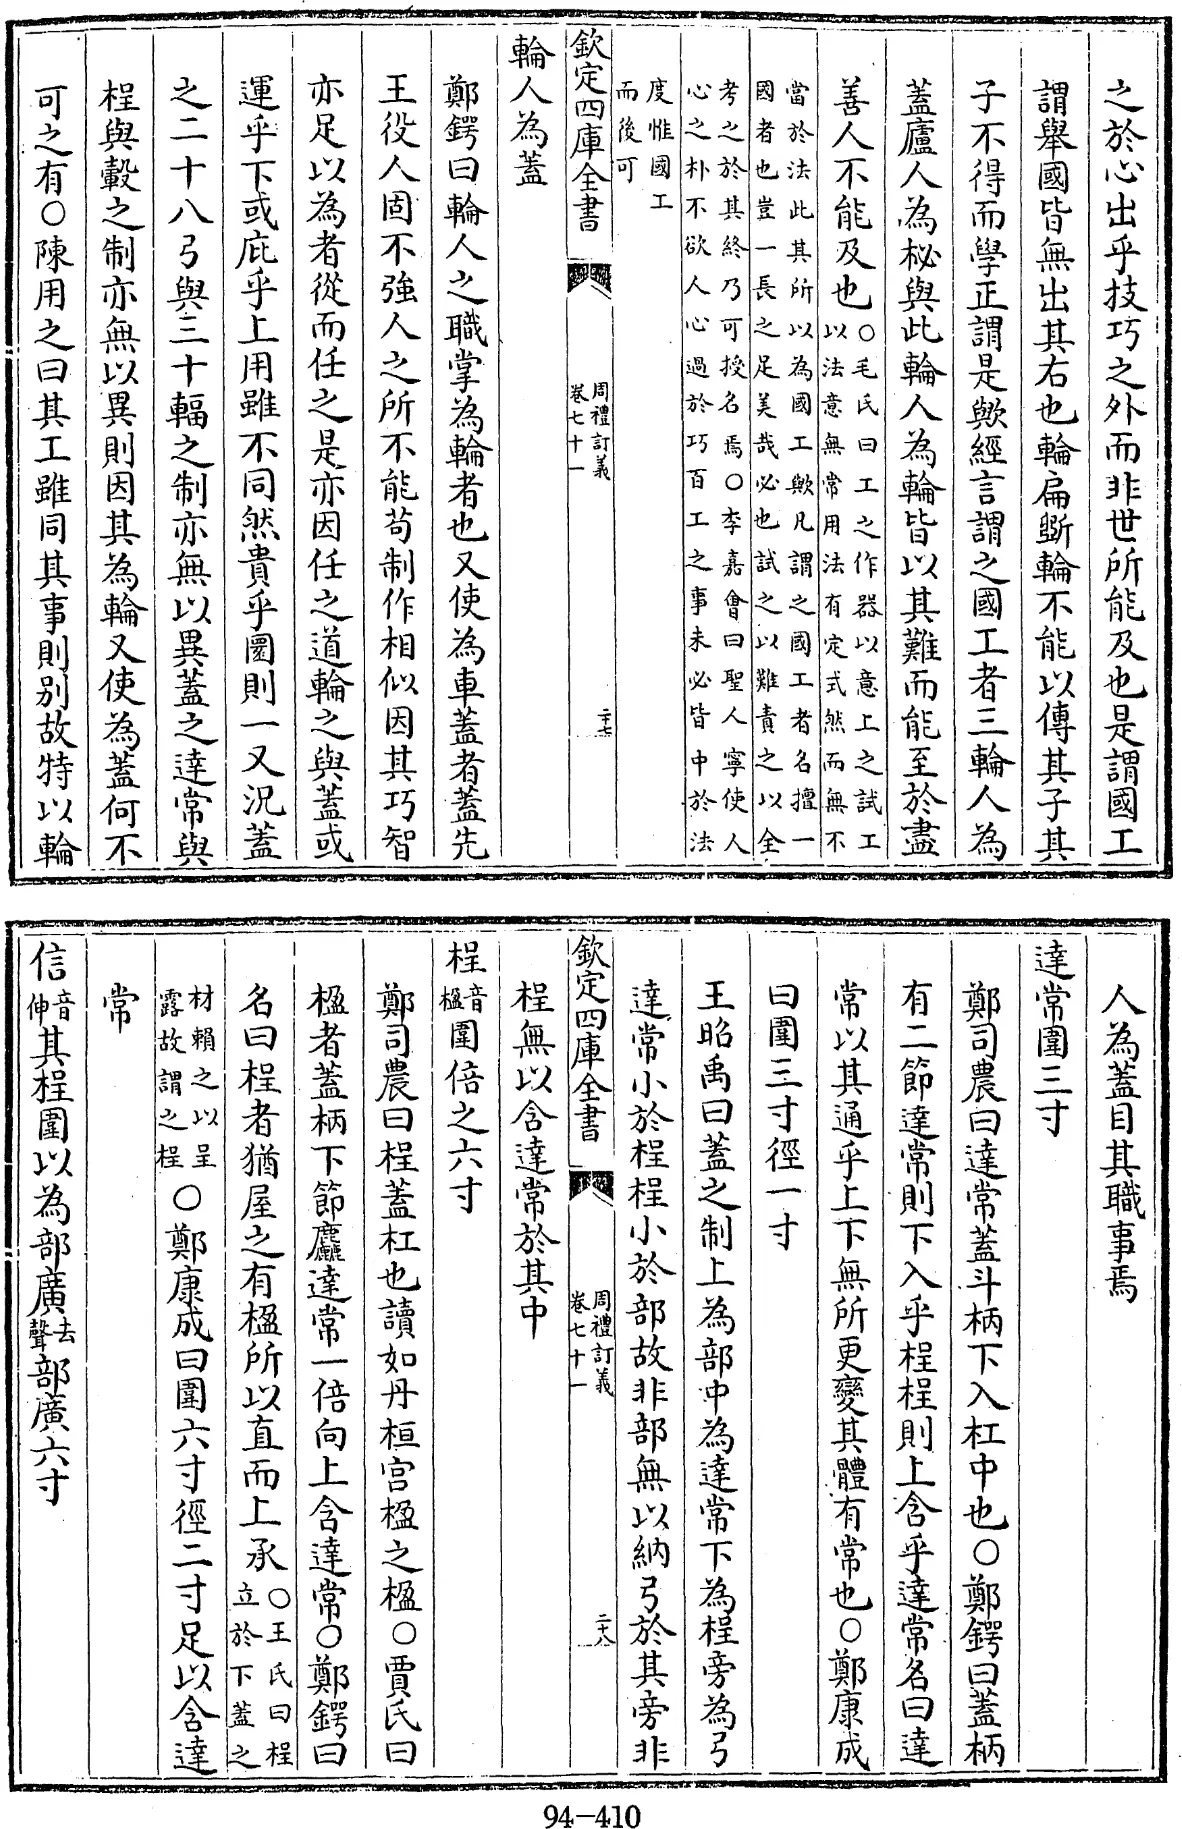 之於心出乎技巧之外而非世所能及也是謂國工
謂舉國皆無出其右也輪扁斵輪不能以傳其子其
子不得而學正謂是歟經言謂之國工者三輪人為
蓋廬人為柲與此輪人為輪皆以其難而能至於盡
善人不能及也○毛氏曰工之作器以意上之試工
以法意無常用法有定式然而無不
當於法此其所以為國工歟凡謂之國工者名擅一
國者也豈一長之足美哉必也試之以難責之以全
考之於其終乃可授名焉○李嘉會曰聖人寧使人
心之朴不欲人心過於巧百工之事未必皆中於法
度惟國工
而後可
欽定四庫全書
周禮訂義
卷七十一
二十七
輪人為蓋
鄭鍔曰輪人之職掌為輪者也又使為車蓋者蓋先
王役人固不強人之所不能苟制作相似因其巧智
亦足以為者從而任之是亦因任之道輪之與蓋或
運乎下或庇乎上用雖不同然貴乎圜則一又況蓋
之二十八弓與三十輻之制亦無以異蓋之達常與
桯與轂之制亦無以異則因其為輪又使為蓋何不
可之有○陳用之曰其工雖同其事則别故特以輪
人為蓋目其職事焉
達常圍三寸
鄭司農曰達常蓋斗柄下入杠中也○鄭鍔曰蓋柄
有二節達常則下入乎桯桯則上含乎達常名曰達
常以其通乎上下無所更變其體有常也○鄭康成
曰圍三寸徑一寸
王昭禹曰蓋之制上為部中為達常下為桯旁為弓
達常小於桯桯小於部故非部無以納弓於其旁非
欽定四庫全書
周禮訂義
卷七十一
二十八
桯無以含達常於其中
桯音楹圍倍之六寸
鄭司農曰桯蓋杠也讀如丹桓宮楹之楹○賈氏曰
楹者蓋柄下節麤達常一倍向上含達常○鄭鍔曰
名曰桯者猶屋之有楹所以直而上承○王氏曰桯
立於下蓋之
材賴之以呈
露故謂之桯○鄭康成曰圍六寸徑二寸足以含達
常
信音伸其桯圍以為部廣去聲部廣六寸
94-410